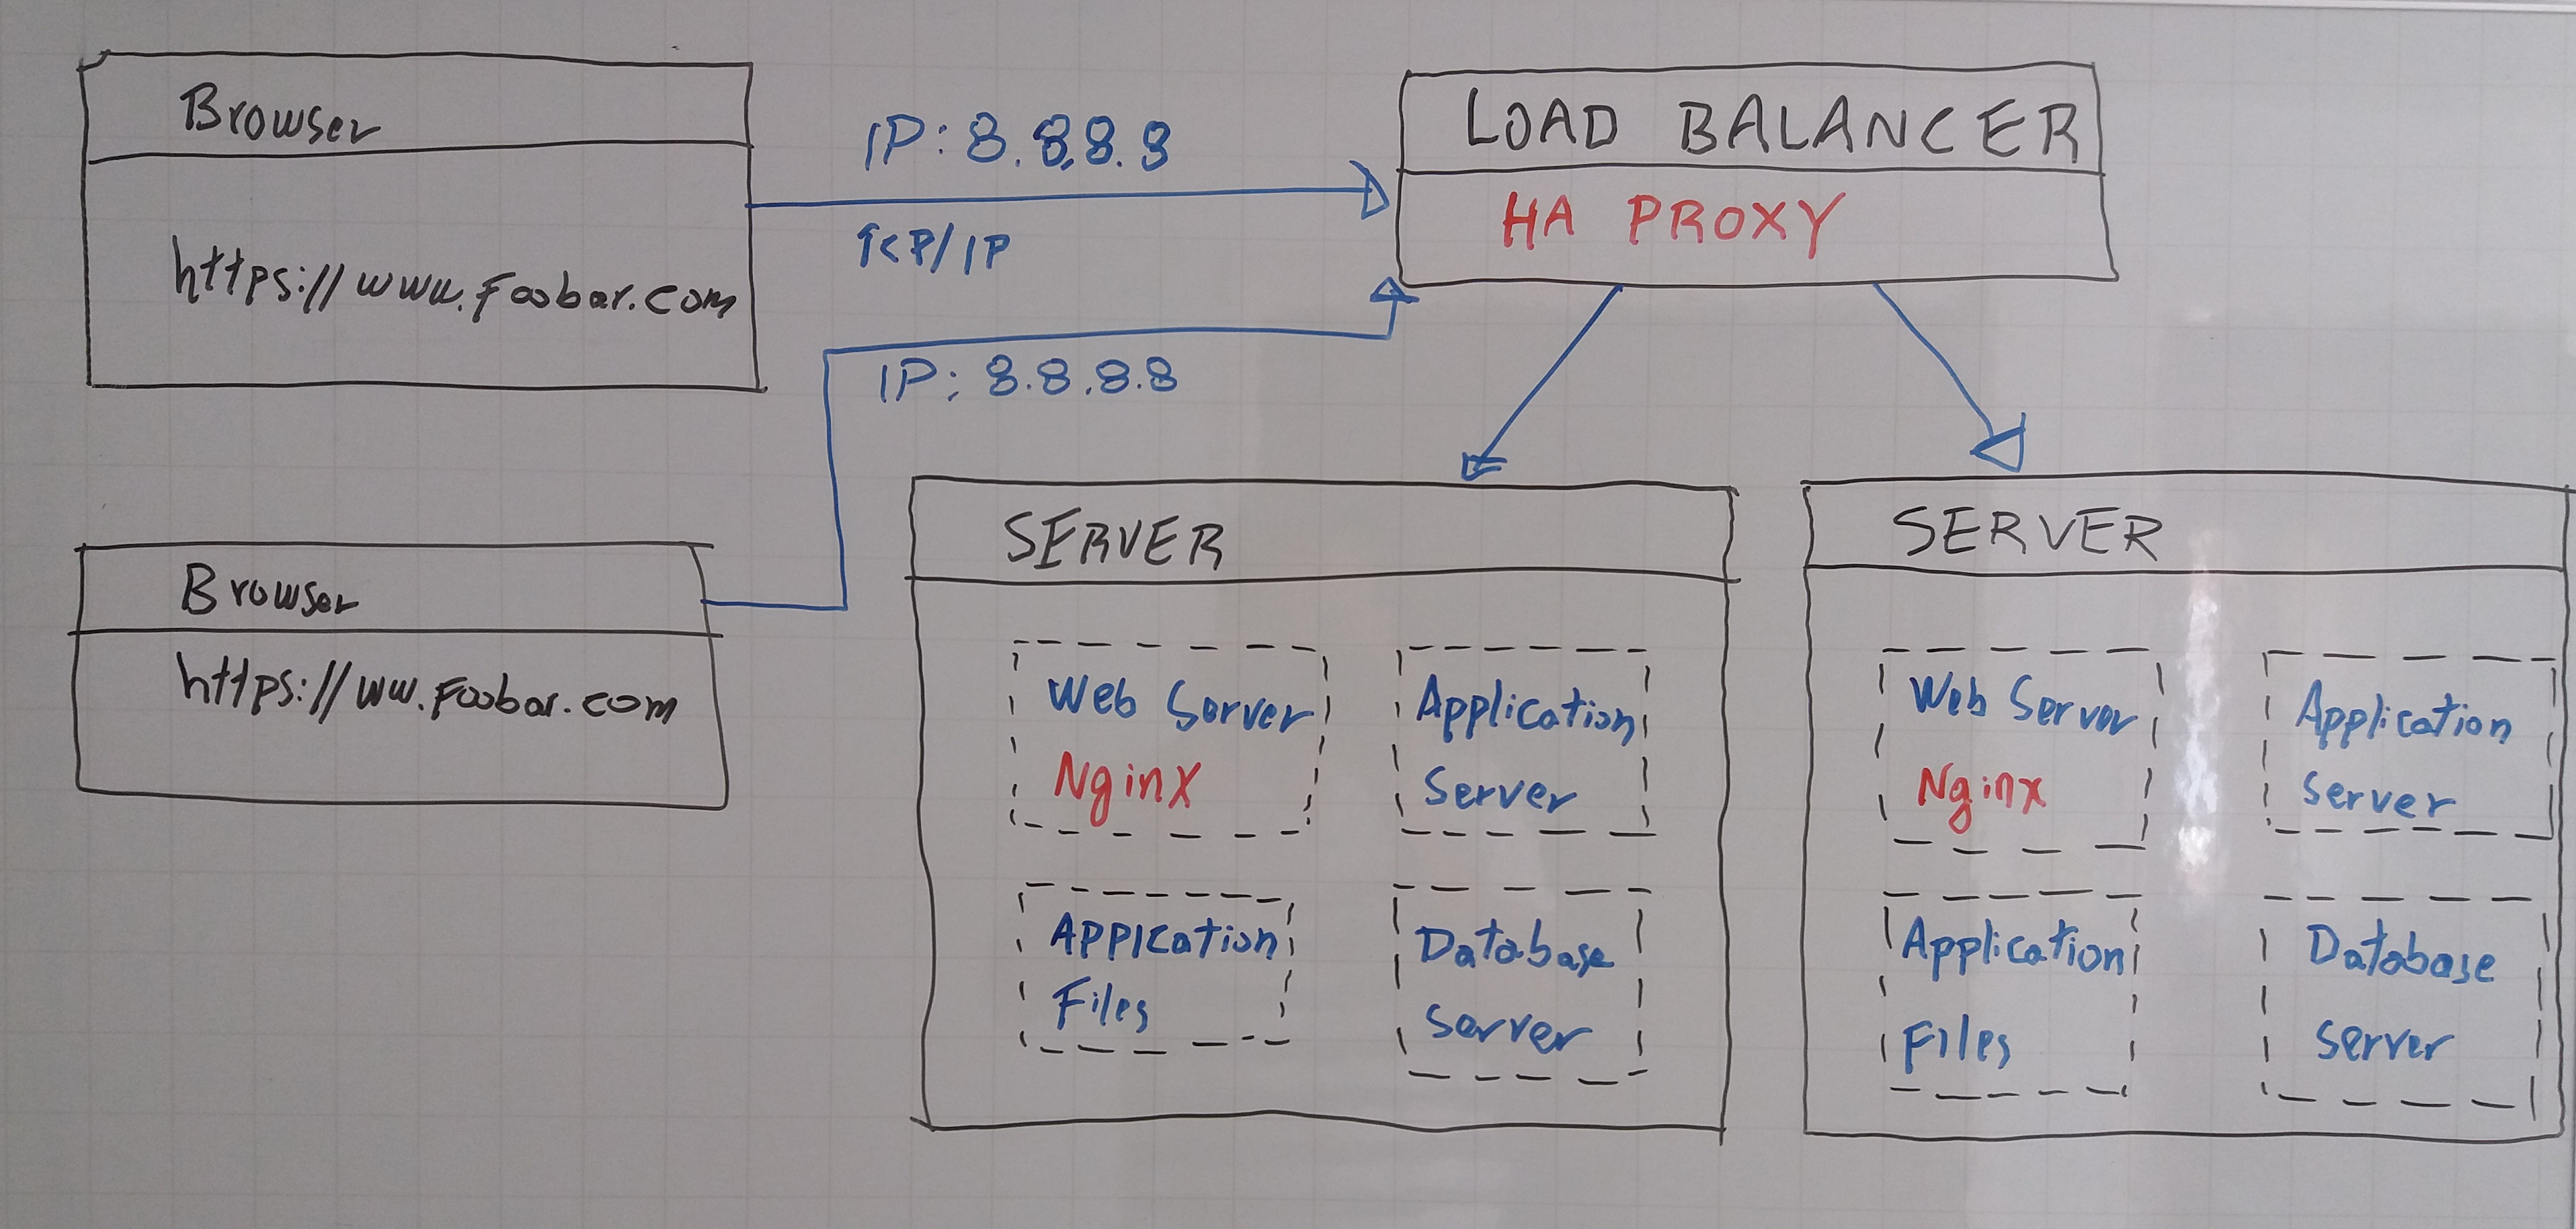 Browser
https://www.foobar.com
IP: 8.8.8.8
TCP/IP
LOAD BALANCER
HA PROXY
IP: 8.8.8.8
Browser
https://ww.foobar.com
SERVER
Web Server
Nginx
Application
Server
Appication
Files
Database
Server
SERVER
Web Server
Nginx
Application
Server
Application
Files
Database
Server